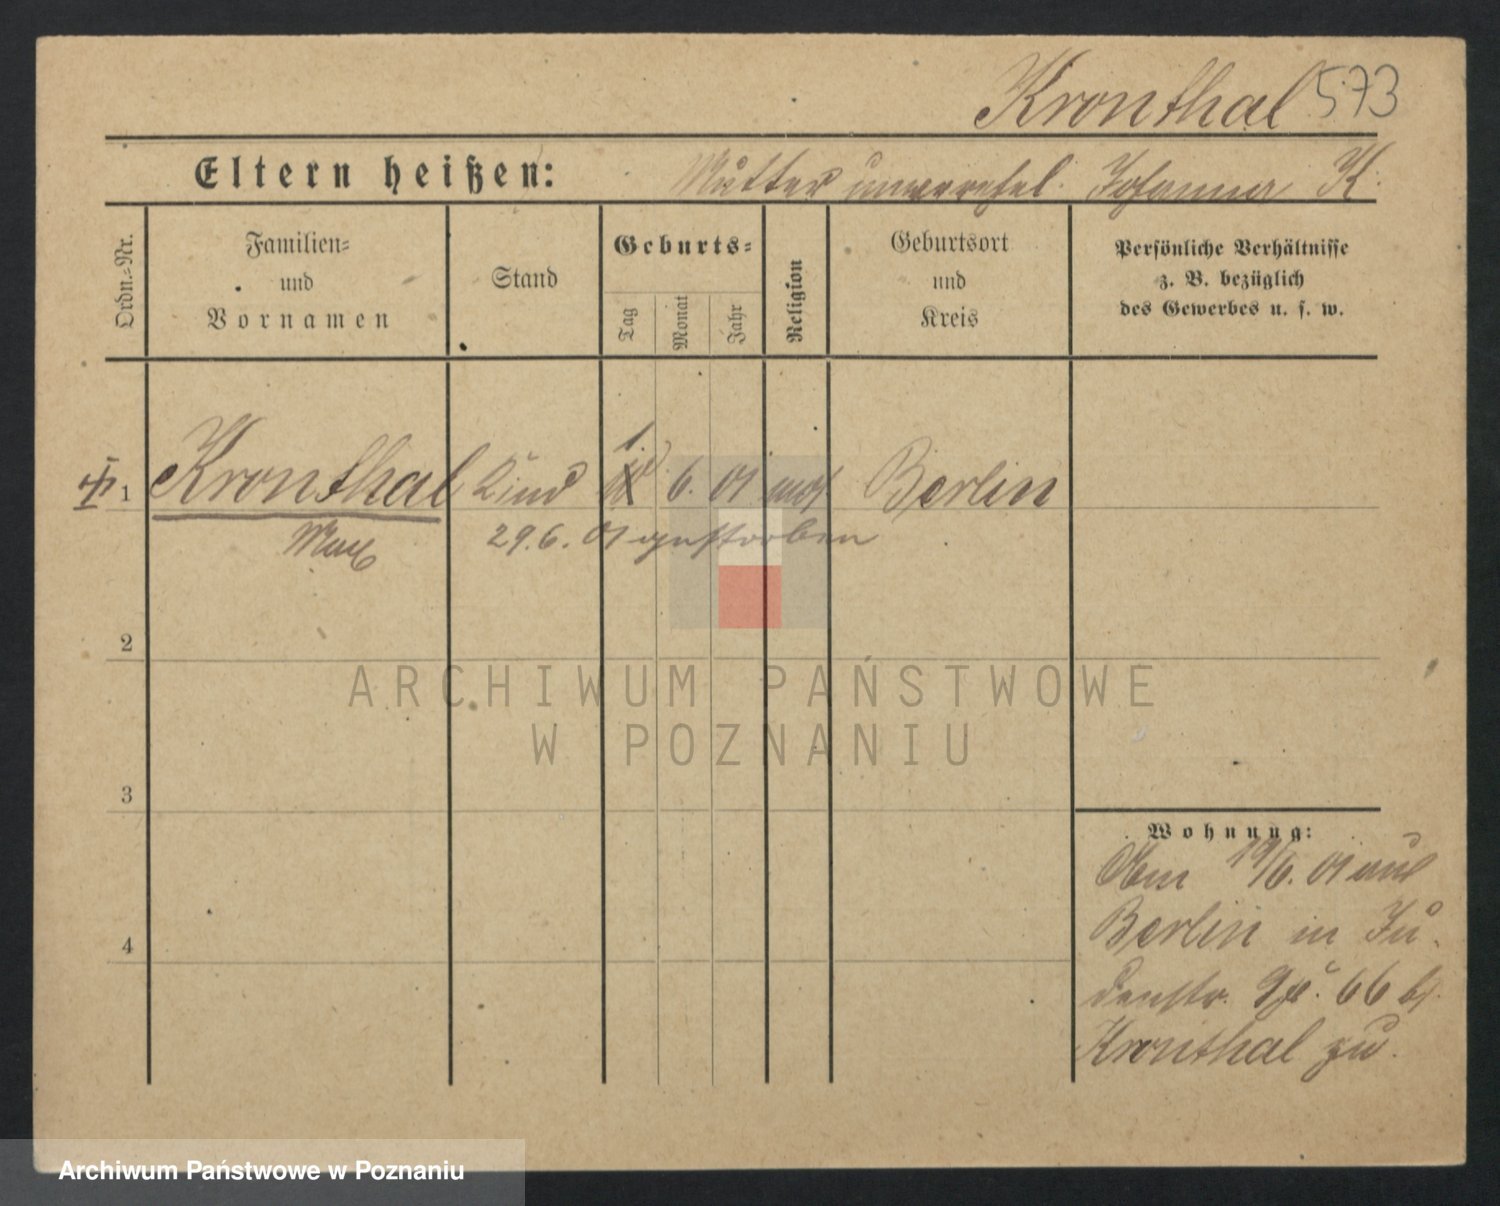 Kronthal 573
Eltern heißen: Mutter unverehel. Johanna K.
Ordn.-Nr.
Familien-
und
Vornamen
Stand
Geburts-
Tag
Monat
Jahr
Religion
Geburtsort
und
Kreis
Persönliche Verhältnisse
z. B. bezüglich
des Gewerbes u. s. w.
1 Kronthal Kind 1. 6. 01 mos. Berlin
Max 29.6.01 gestorben
2
ARCHIWUM PAŃSTWOWE
W POZNANIU
3
Wohnung:
19/6. 01 aus
Berlin in Ju-
4
denstr. 66 bei
Kronthal zu.
Archiwum Państwowe w Poznaniu